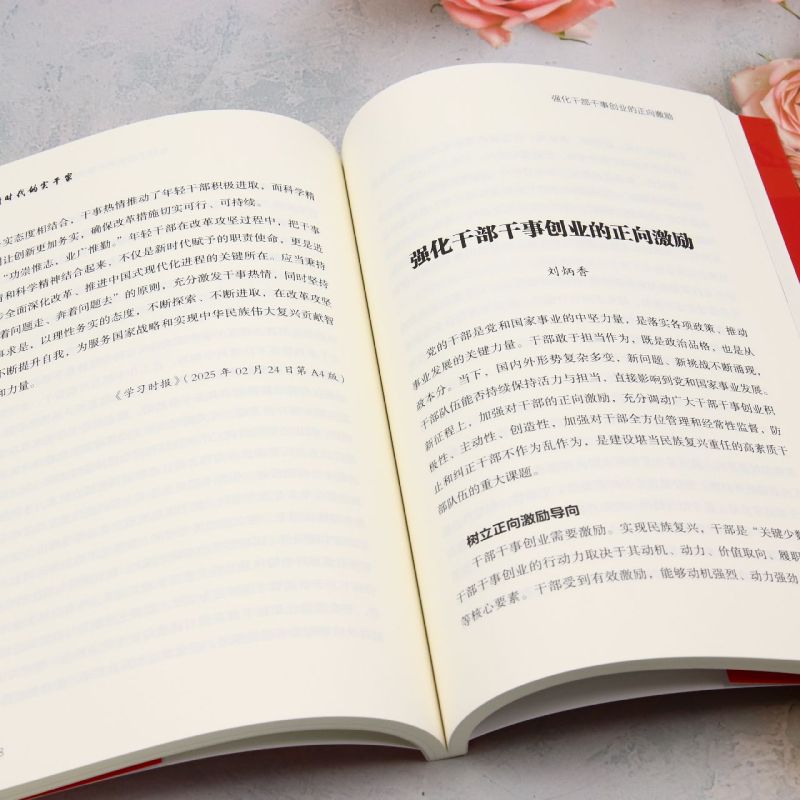 时代的实干家
实态度相结合，干事热情推动了年轻干部积极进取，而科学精
让创新更加务实，确保改革措施切实可行、可持续。
“功崇惟志，业广惟勤。”年轻干部在改革攻坚过程中，把干事
和科学精神结合起来，不仅是新时代赋予的职责使命，更是进
全面深化改革、推进中国式现代化进程的关键所在。应当秉持
着问题走、奔着问题去”的原则，充分激发干事热情，同时坚持
事求是，以理性务实的态度，不断探索、不断进取，在改革攻坚
不断提升自我，为服务国家战略和实现中华民族伟大复兴贡献智
和力量。
《学习时报》（2025 年 02 月 24 日第 A4 版）
8
强化干部干事创业的正向激励
强化干部干事创业的正向激励
刘炳香
党的干部是党和国家事业的中坚力量，是落实各项政策、推动
事业发展的关键力量。干部敢于担当作为，既是政治品格，也是从
政本分。当下，国内外形势复杂多变，新问题、新挑战不断涌现，
干部队伍能否持续保持活力与担当，直接影响到党和国家事业发展。
新征程上，加强对干部的正向激励，充分调动广大干部干事创业积
极性、主动性、创造性，加强对干部全方位管理和经常性监督，防
止和纠正干部不作为乱作为，是建设堪当民族复兴重任的高素质干
部队伍的重大课题。
树立正向激励导向
干部干事创业需要激励。实现民族复兴，干部是“关键少数
干部干事创业的行动力取决于其动机、动力、价值取向、履职
等核心要素。干部受到有效激励，能够动机强烈、动力强劲